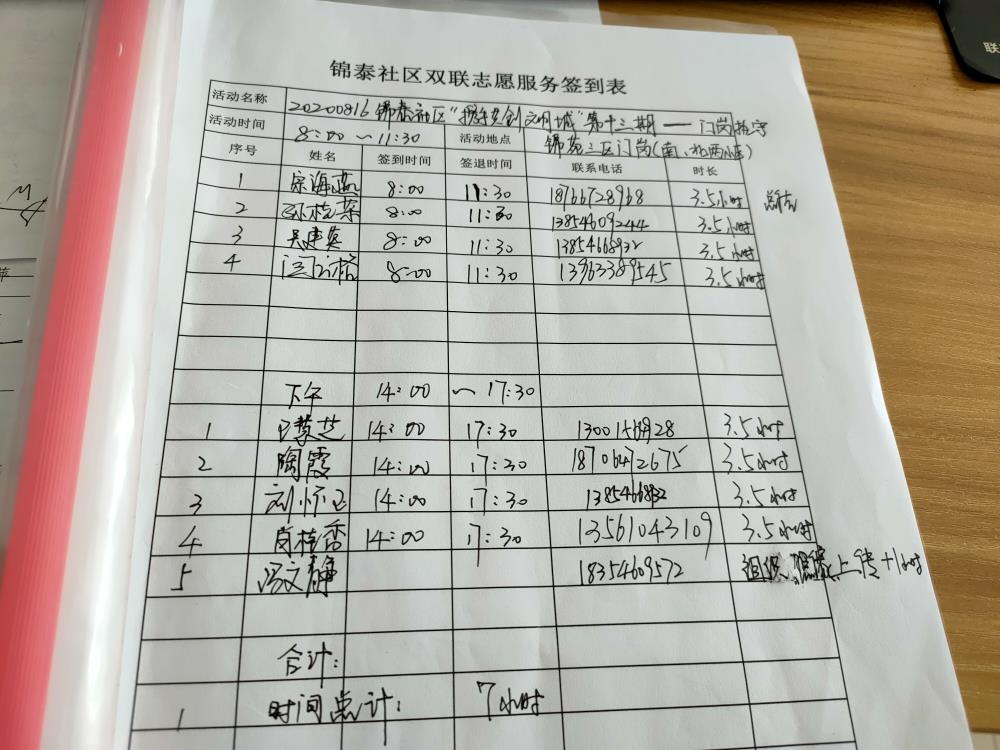 锦泰社区双联志愿服务签到表
活动名称 20200816锦泰社区"携手共创文明城"第十三期——门岗执守
活动时间 8:00~11:30 活动地点 锦苑三区门岗(南、北两小区)
序号 姓名 签到时间 签退时间 联系电话 时长
1 宗海燕 8:00 11:30 18766728968 3.5小时
2 孙桂荣 8:00 11:30 13854609244 3.5小时
3 吴建英 8:00 11:30 13854668932 3.5小时
4 8:00 11:30 13963389545 3.5小时
下午 14:00 ~17:30
1 14:00 17:30 3.5小时
2 陶霞 14:00 17:30 18706472675 3.5小时
3 刘怀正 14:00 17:30 3.5小时
4 肖桂香 14:00 17:30 13561043109 3.5小时
5 冯文静 18354609572 组织 上传+1小时
合计:
1 时间总计: 7小时
联